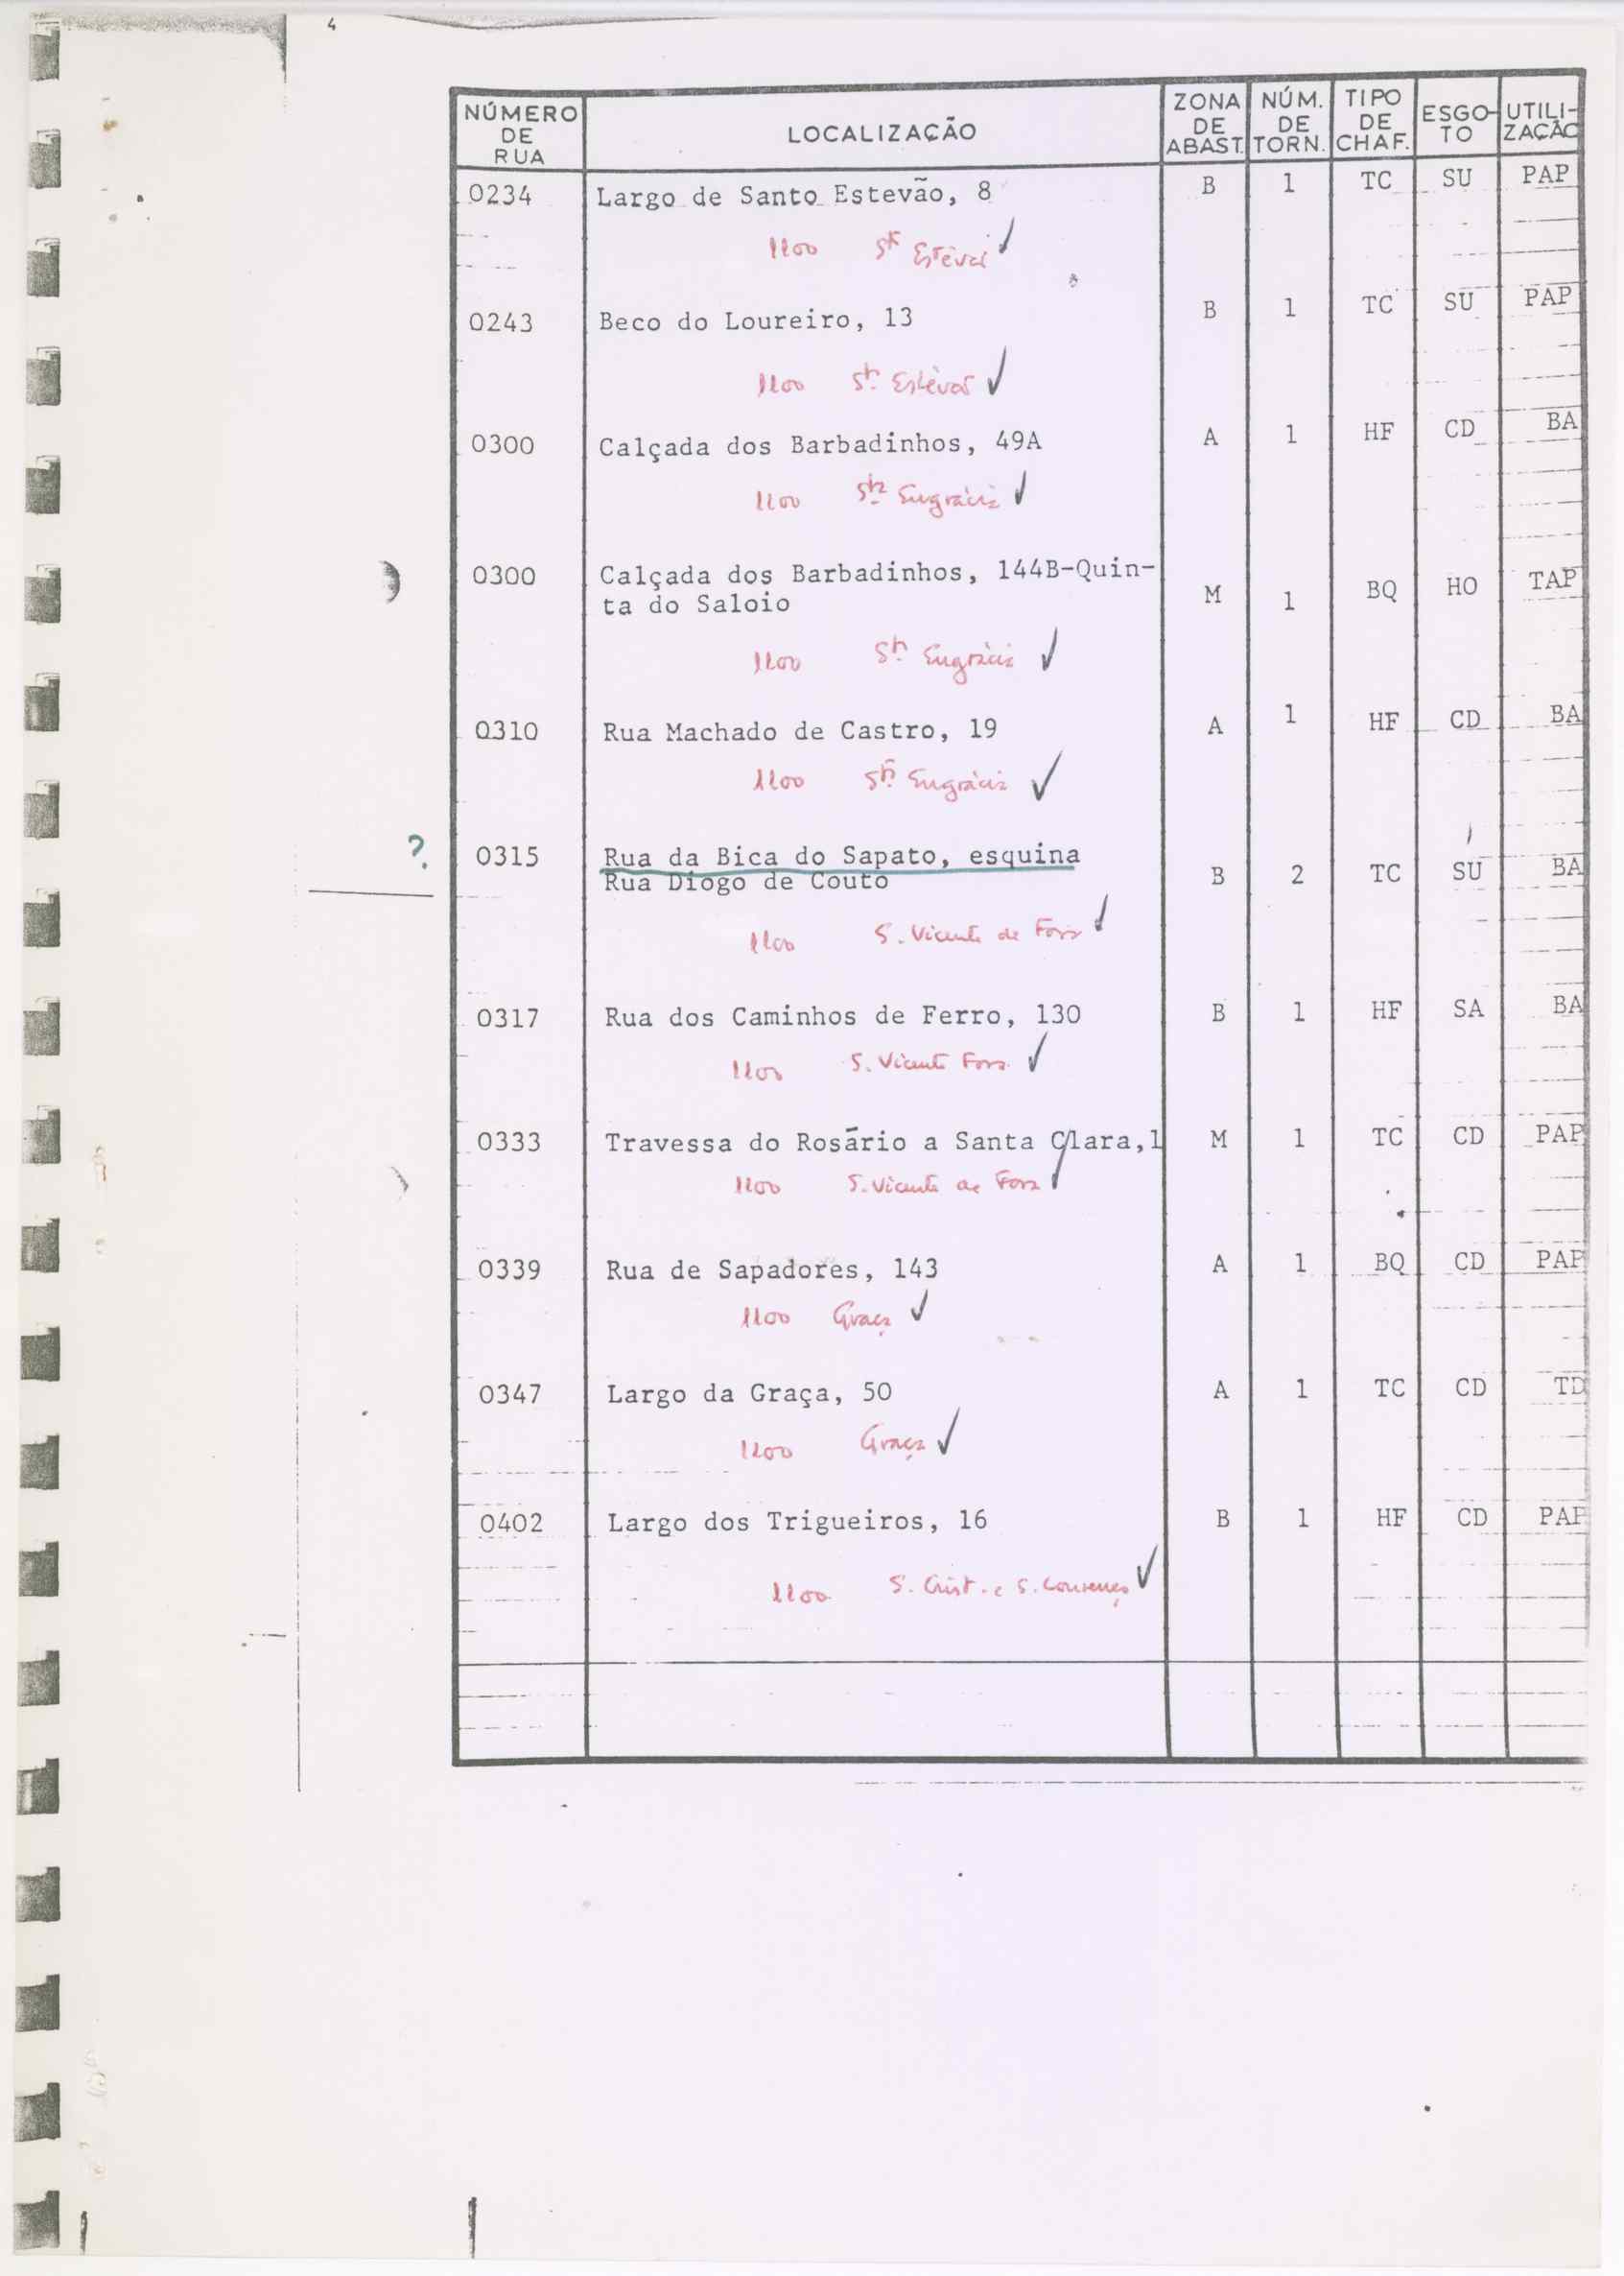 4
NÚMERO DE RUA LOCALIZAÇÃO ZONA DE ABAST. NÚM. DE TORN. TIPO DE CHAF. ESGO-TO UTILI-ZAÇÃO
0234 Largo de Santo Estevão, 8 B 1 TC SU PAP
1100 Stº Estevão ✓
0243 Beco do Loureiro, 13 B 1 TC SU PAP
1100 Stº Estevão ✓
0300 Calçada dos Barbadinhos, 49A A 1 HF CD BA
1100 Stª Engrácia ✓
0300 Calçada dos Barbadinhos, 144B-Quin-
ta do Saloio M 1 BQ HO TAP
1100 Stª Engrácia ✓
0310 Rua Machado de Castro, 19 A 1 HF CD BA
1100 Stª Engrácia ✓
? 0315 Rua da Bica do Sapato, esquina
Rua Diogo de Couto B 2 TC SU BA
1100 S. Vicente de Fora ✓
0317 Rua dos Caminhos de Ferro, 130 B 1 HF SA BA
1100 S. Vicente Fora ✓
0333 Travessa do Rosário a Santa Clara,1 M 1 TC CD PAP
1100 S. Vicente de Fora ✓
0339 Rua de Sapadores, 143 A 1 BQ CD PAP
1100 Graça ✓
0347 Largo da Graça, 50 A 1 TC CD TD
1100 Graça ✓
0402 Largo dos Trigueiros, 16 B 1 HF CD PAP
1100 S. Crist. e S. Lourenço ✓